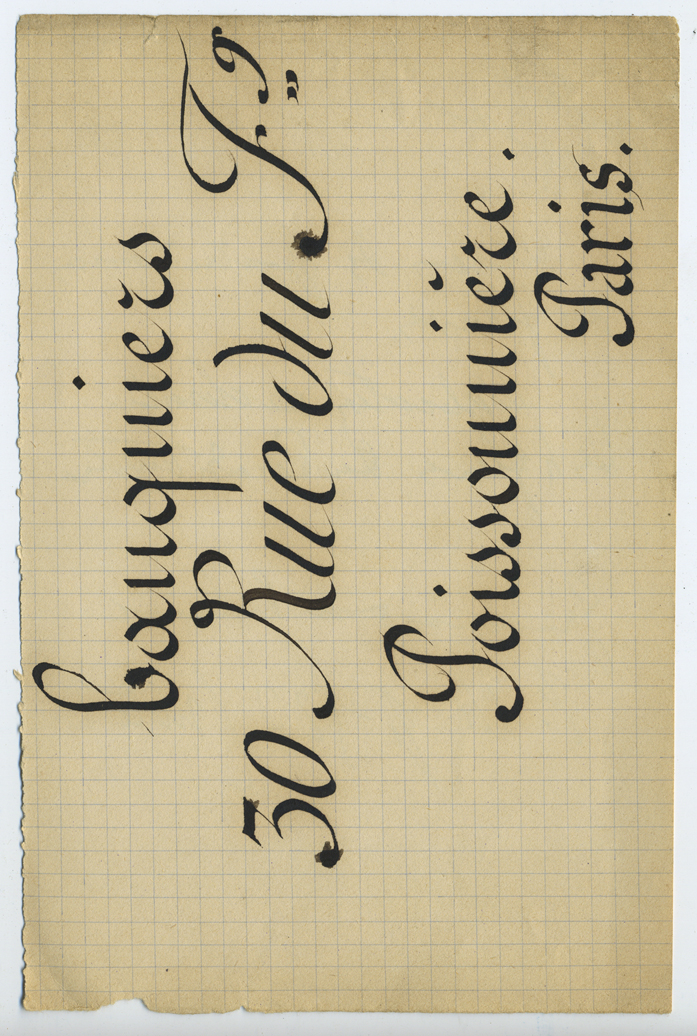 banquiers
30 Rue du Fg
Poissonnière.
Paris.